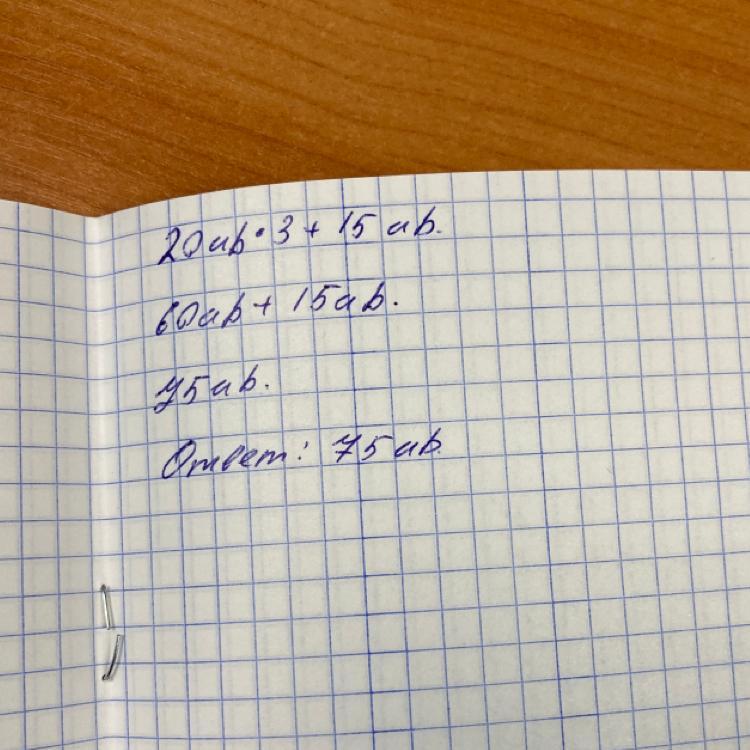 20ab·3 + 15 ab.
60ab + 15ab.
75ab.
Ответ: 75 ab.